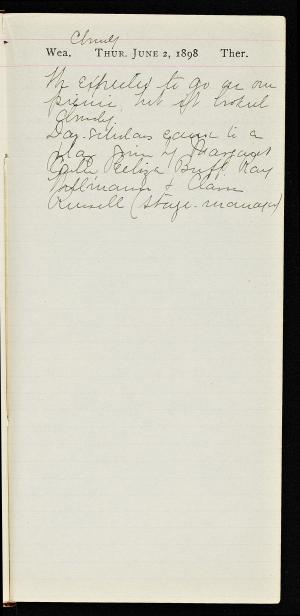 Cloudy
Wea. THUR. JUNE 2, 1898 Ther.
We expected to go on our
picnic, but it looked
cloudy.
Day-scholars came to a
play given by Margaret
Buff, Kay
& Clara
Russell (stage-manager)